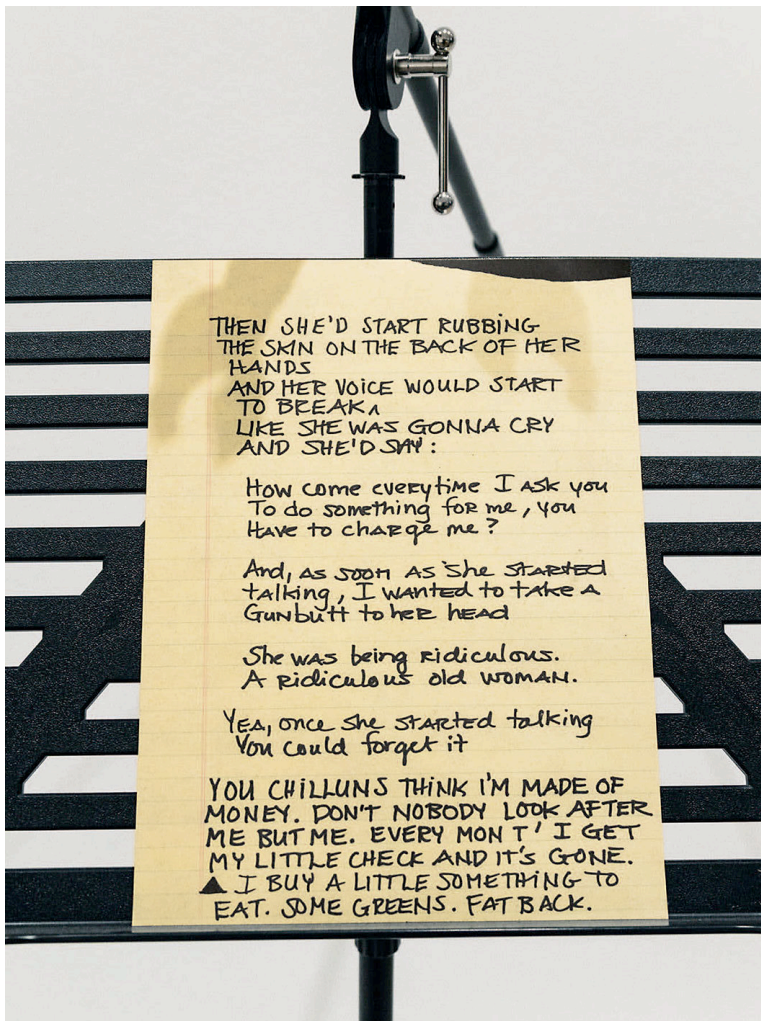 THEN SHE'D START RUBBING
THE SKIN ON THE BACK OF HER
HANDS
AND HER VOICE WOULD START
TO BREAK,
LIKE SHE WAS GONNA CRY
AND SHE'D SAY:
How come everytime I ask you
To do something for me, you
Have to charge me?
And, as soon as she started
talking, I wanted to take a
Gunbutt to her head
She was being ridiculous.
A ridiculous old woman.
Yea, once she started talking
You could forget it
YOU CHILLUNS THINK I'M MADE OF
MONEY. DON'T NOBODY LOOK AFTER
ME BUT ME. EVERY MON T' I GET
MY LITTLE CHECK AND IT'S GONE.
▲ I BUY A LITTLE SOMETHING TO
EAT. SOME GREENS. FAT BACK.